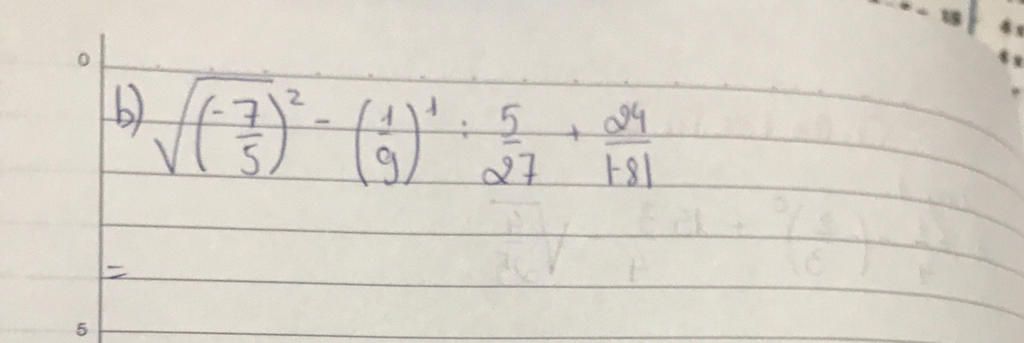 0
b) √(-7/5)² - (1/9)¹ : 5/27 + 24/|-8|
=
5